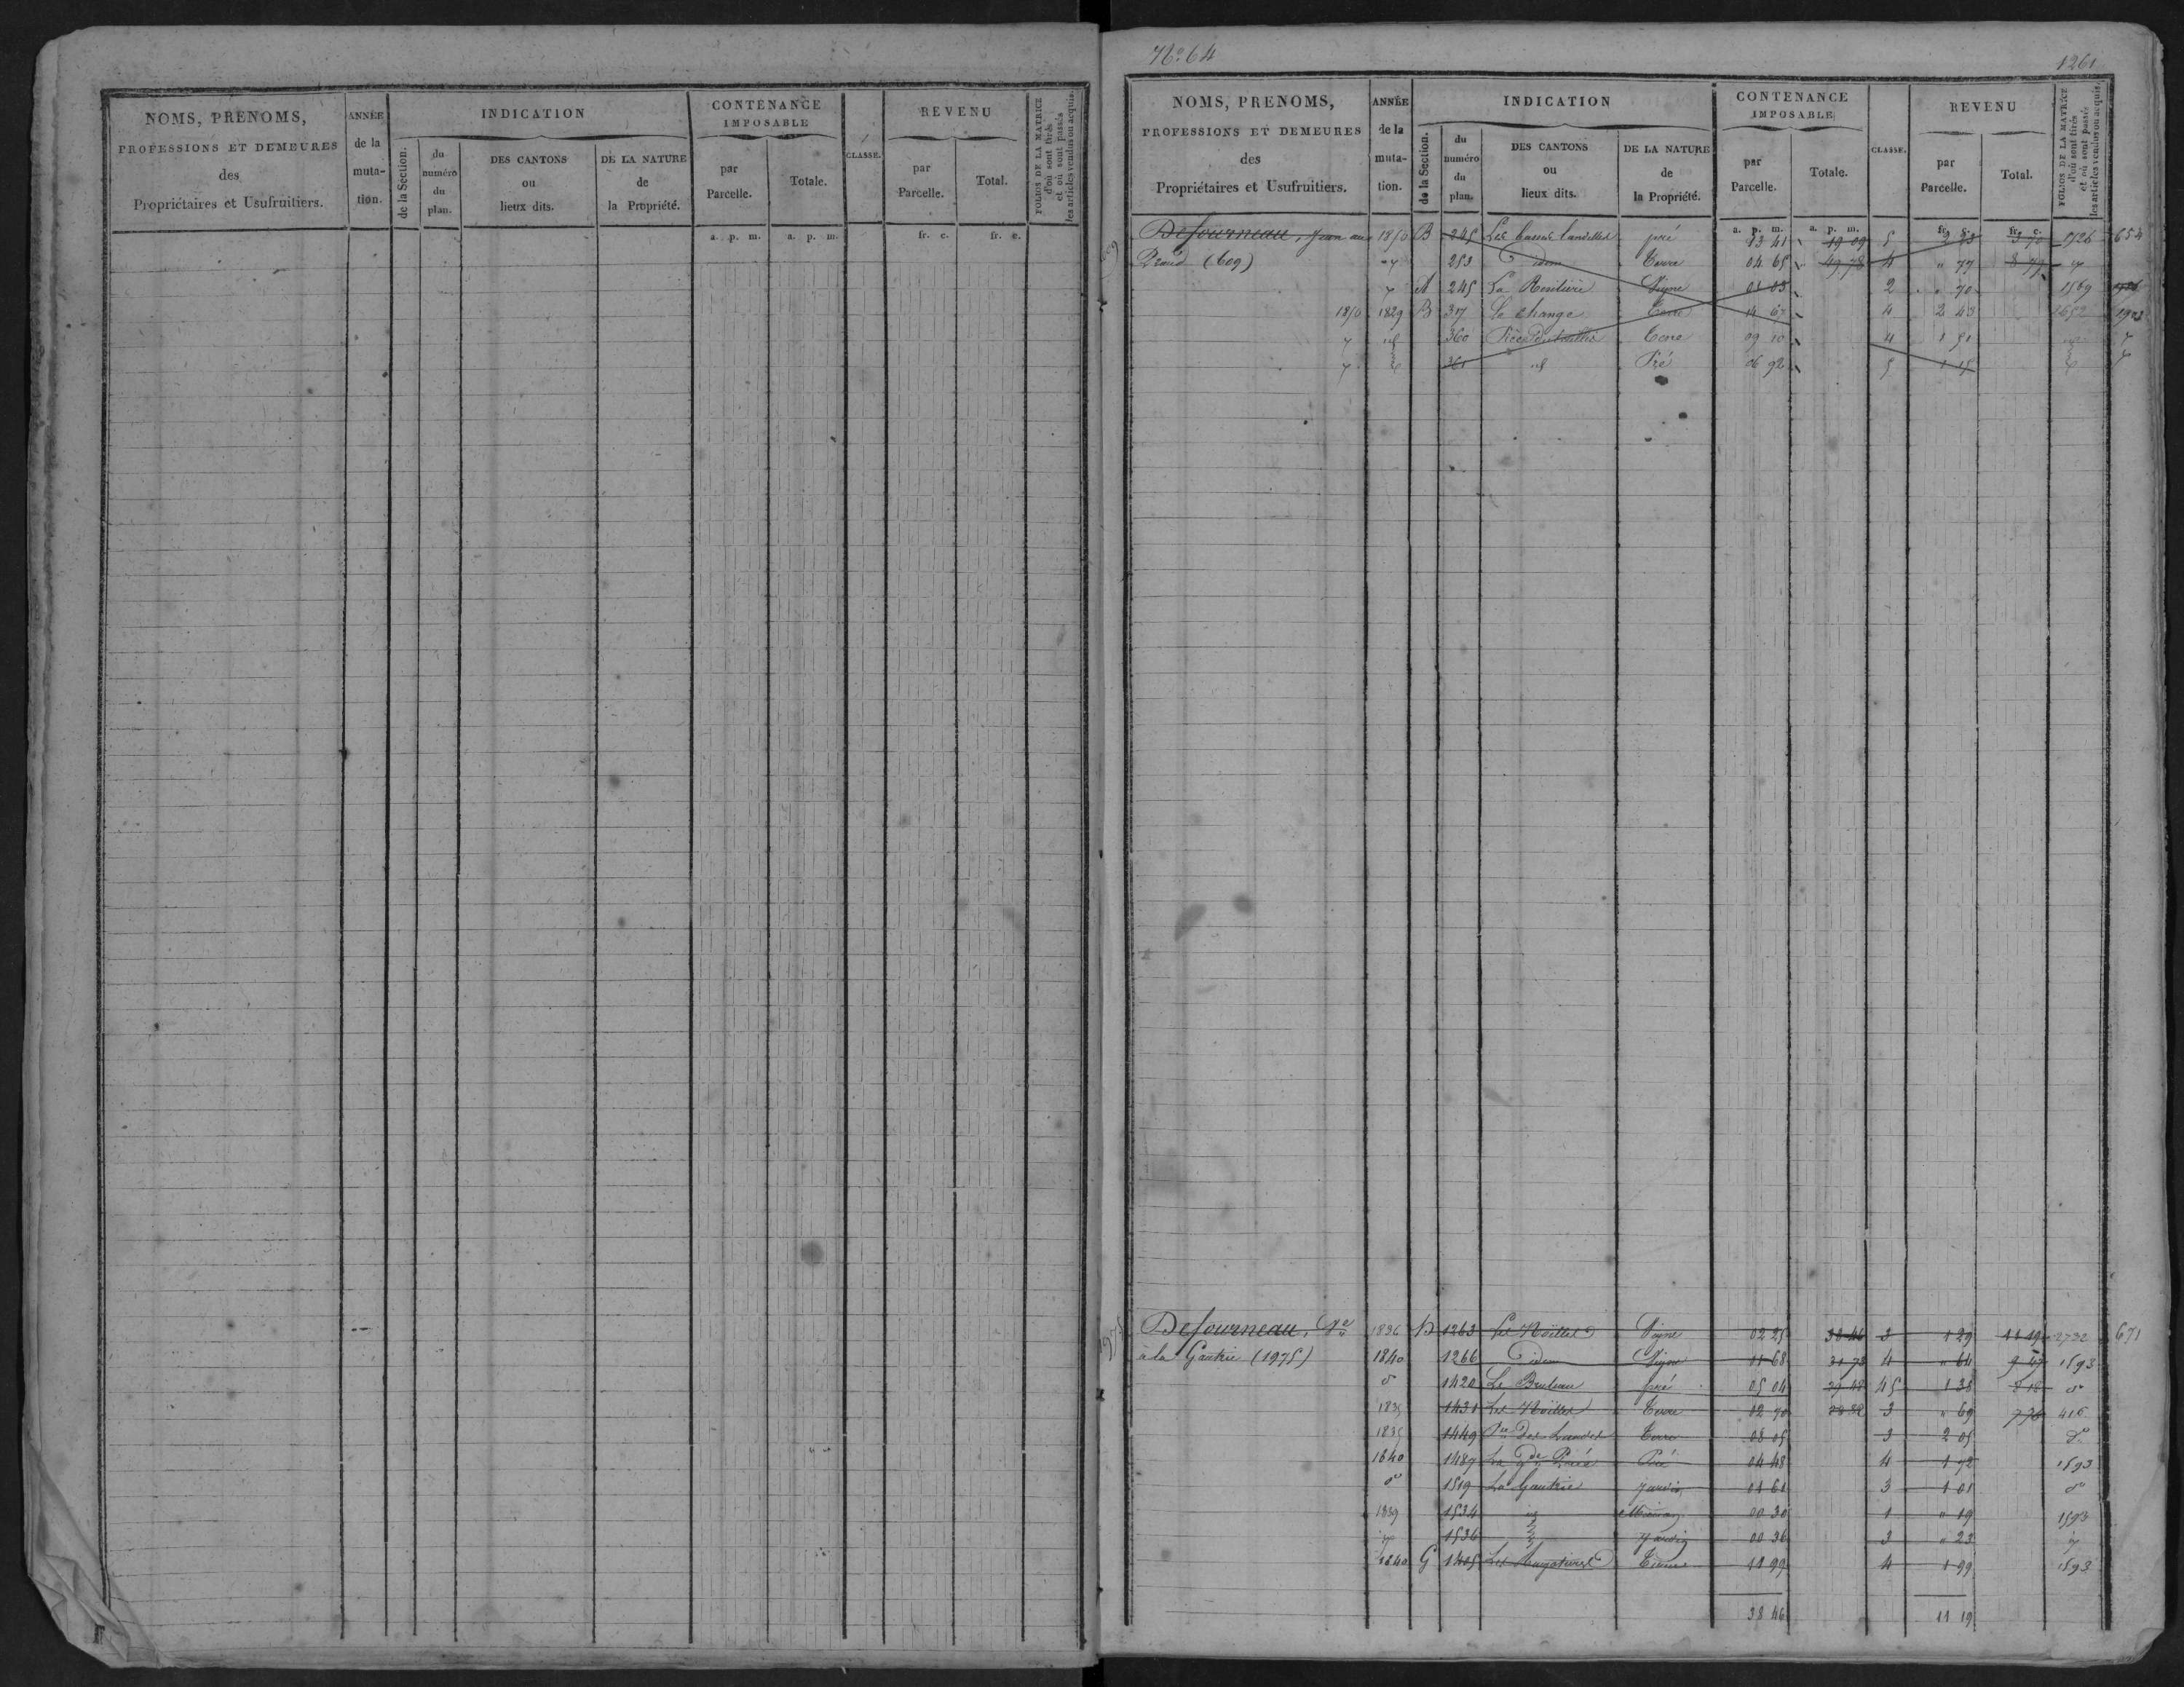 NOMS, PRENOMS,
PROFESSIONS ET DEMEURES
des
Propriétaires et Usufruitiers.
ANNÉE
de la
muta-
tion.
INDICATION
de la Section.
du
numéro
du
plan.
DES CANTONS
ou
lieux dits.
DE LA NATURE
de
la Propriété.
CONTENANCE
IMPOSABLE
par
Parcelle.
Totale.
CLASSE.
REVENU
par
Parcelle.
Total.
FOLIOS DE LA MATRICE
d'où sont tirés
et où sont passés
les articles vendus ou acquis.
a. p. m. a. p. m. fr. c. fr. c.
No. 64 1261
NOMS, PRENOMS,
PROFESSIONS ET DEMEURES
des
Propriétaires et Usufruitiers.
ANNÉE
de la
muta-
tion.
INDICATION
de la Section.
du
numéro
du
plan.
DES CANTONS
ou
lieux dits.
DE LA NATURE
de
la Propriété.
CONTENANCE
IMPOSABLE
par
Parcelle.
Totale.
CLASSE.
REVENU
par
Parcelle.
Total.
FOLIOS DE LA MATRICE
d'où sont tirés
et où sont passés
les articles vendus ou acquis.
a. p. m. a. p. m. fr. c. fr. c.
Defourneau, Jean au 1850 B 245 Les basses Landelles pré 13 41 19 09 5 2 23 3 70 1726 654
Praud (609) 253 idem Terre 04 65 49 78 4 " 77 8 79
A 245 La Vigne 01 03 2 " 70 1569
1850 1829 B 317 Le change Terre 14 67 4 2 43 1652
id 360 Pièce Terre 09 10 4 1 51
361 id Pré 06 92 5 1 15
Defourneau, Ve 1836 D 1263 Les Noëlles Vigne 02 25 38 46 3 1 29 11 19 2732 671
à la Gautrie (1975) 1840 1266 idem Vigne 01 68 31 73 4 " 64 9 47 1593
do 1420 Le Bruleau pré 05 04 29 48 45 1 38 8 18 do
1835 1431 Les Noëlles Terre 02 70 28 82 3 " 69 7 76 416
1835 1449 Pce Des Landes Terre 08 05 3 2 05 do
1840 1487 La Gde Prée Pré 04 48 4 1 72 1593
do 1519 La Gautrie Jardin 01 61 3 1 01 do
1839 1534 id Maison 00 30 1 " 19 1593
1536 Jardin 00 36 3 " 23
1840 G 1405 Terre 11 99 4 1 99 1593
38 46 11 19